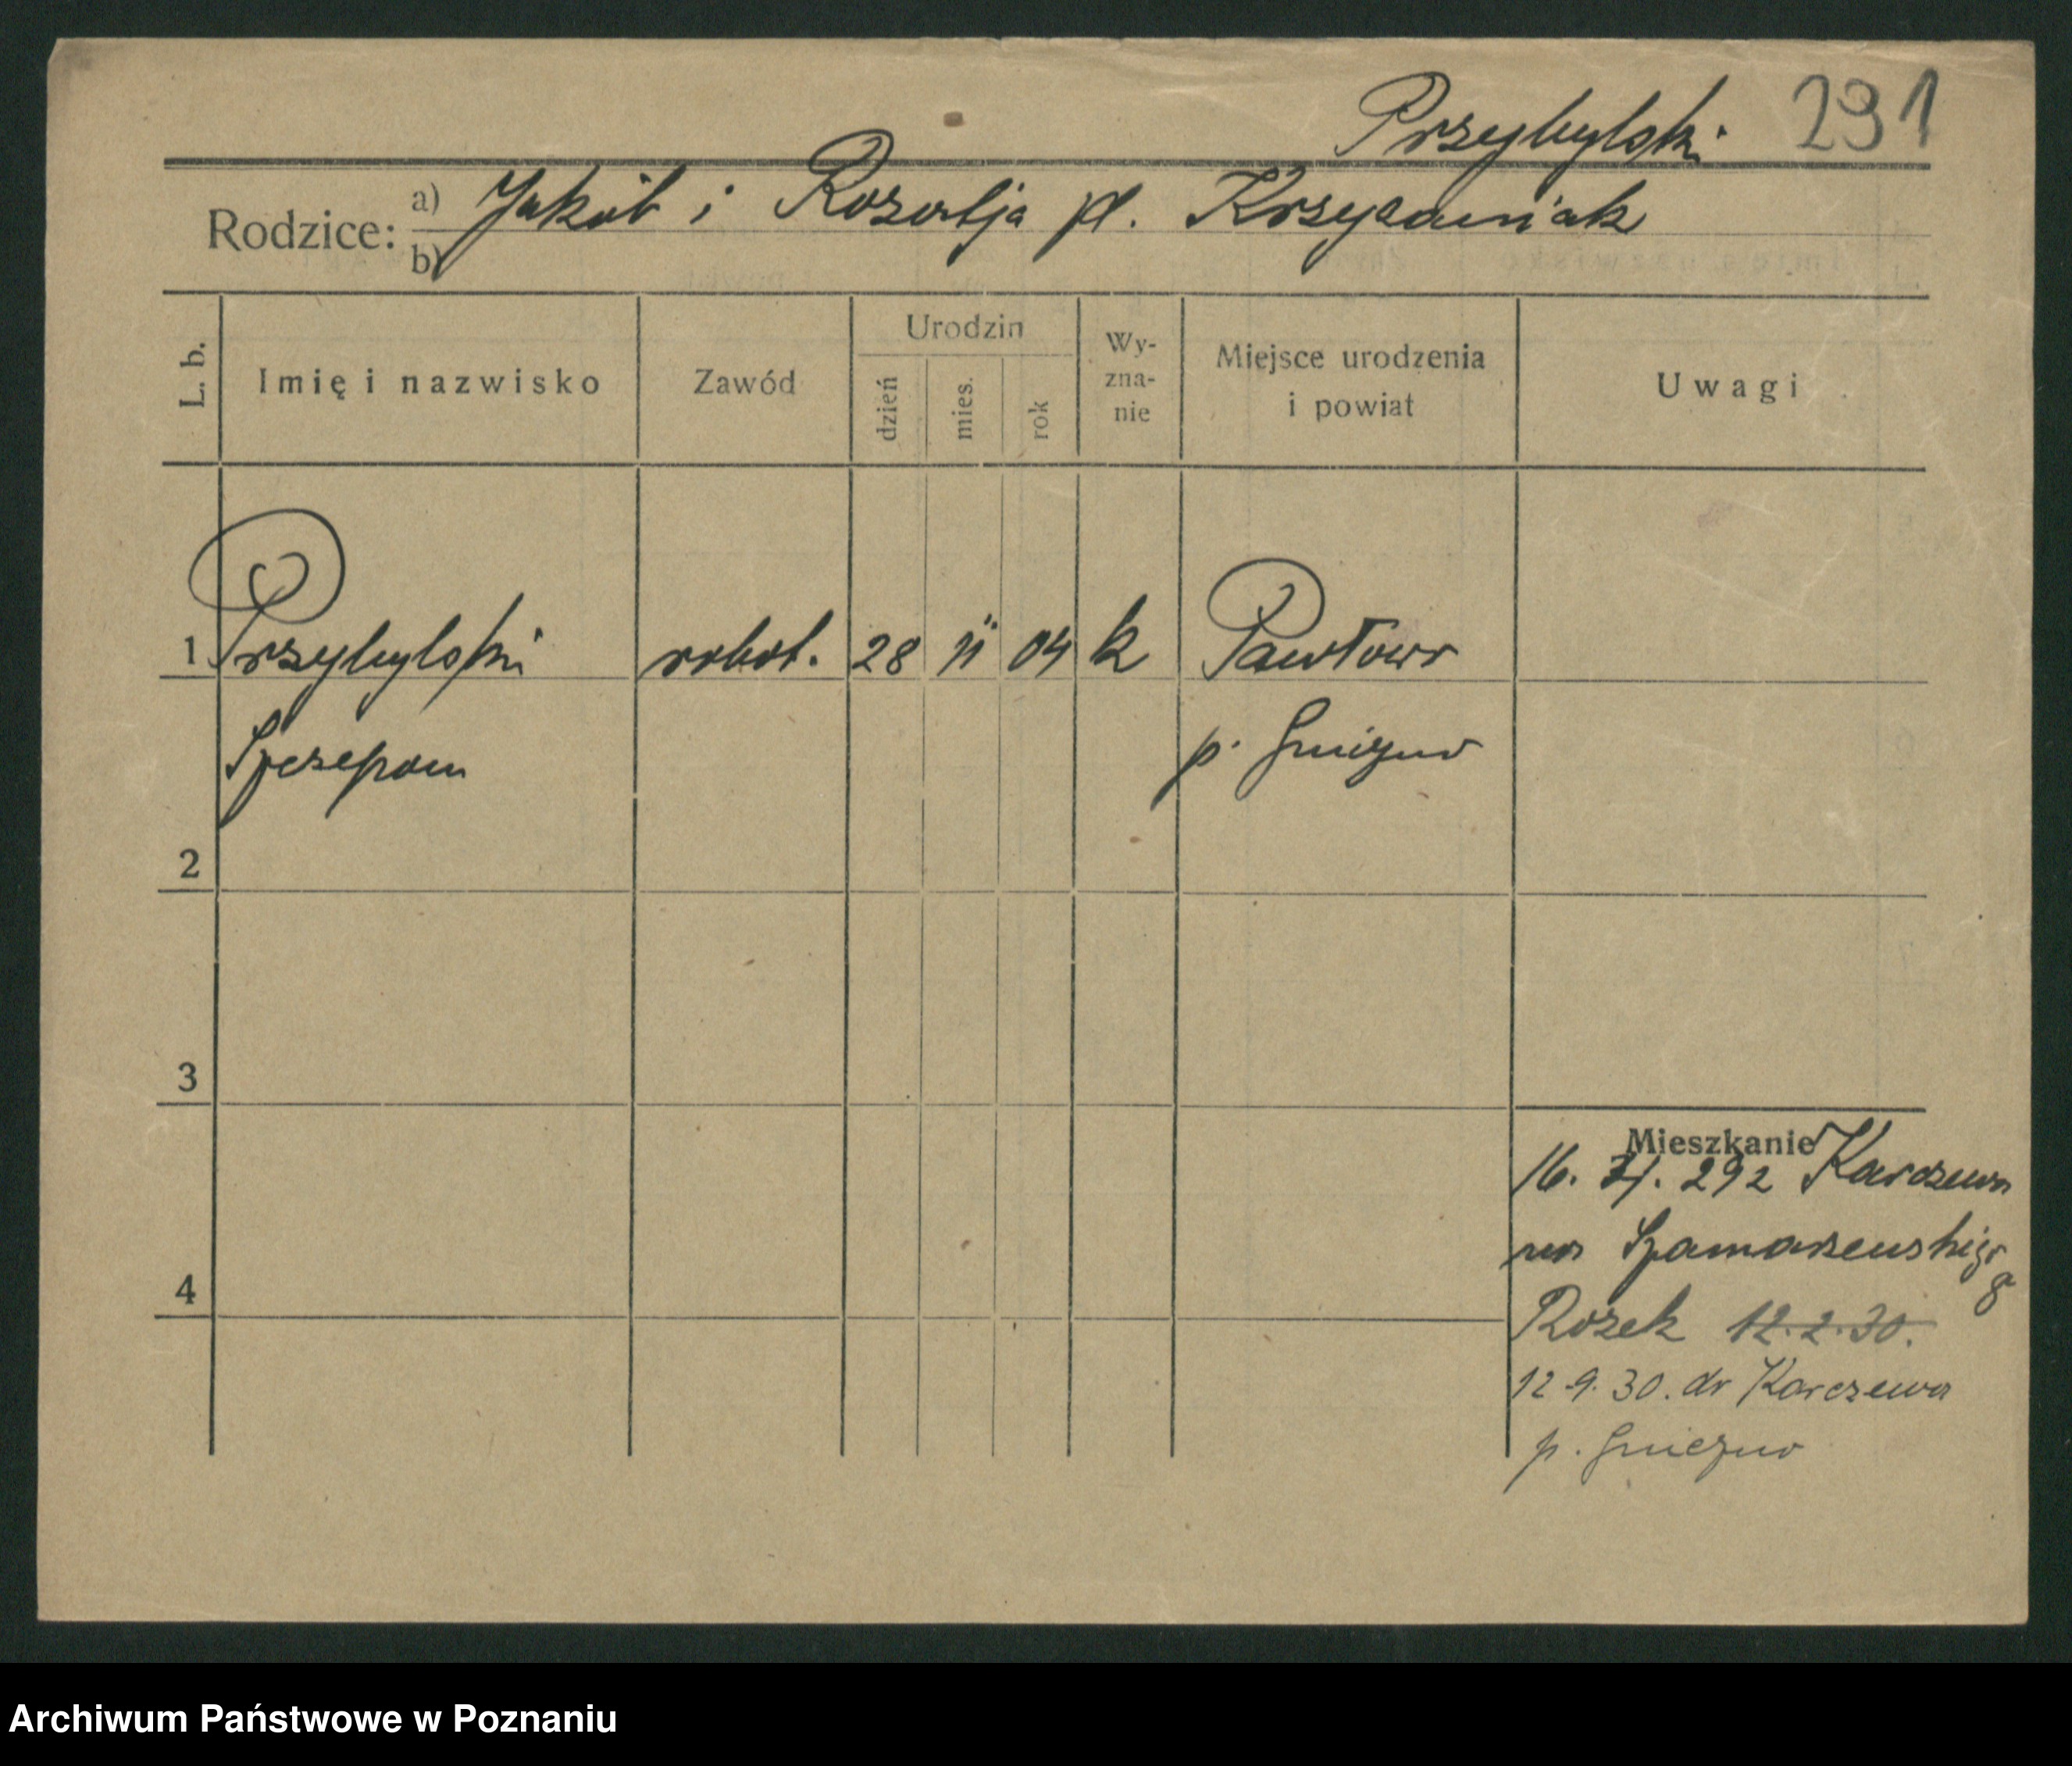 Przybylski 291
Rodzice: a) Jakób i Rozalja pł. Krzyżaniak
b)
L. b. Imię i nazwisko Zawód Urodzin dzień mies. rok Wy-zna-nie Miejsce urodzenia i powiat Uwagi
1 Przybylski robot. 28 11 04 k Pawłowo
Szczepan p. Gniezno
2
3
Mieszkanie
16. 292 Karczewa
4
Rozek 12.2.30.
12.9.30. do Karczewa
p. Gniezno
Archiwum Państwowe w Poznaniu